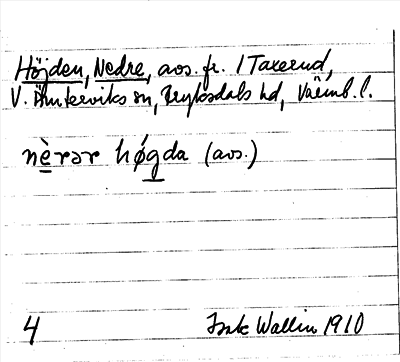 Höjden, Nedre, avs. fr. 1 Taxerud,
V. Ämterviks sn, Fryksdals hd, Värml. l.
nèrər hǿgda (avs.)
4 Wallin 1910